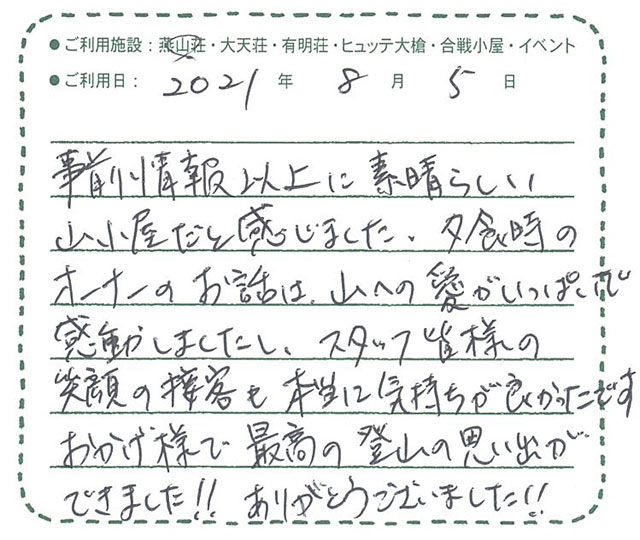 ●ご利用施設：燕山荘・大天荘・有明荘・ヒュッテ大槍・合戦小屋・イベント
●ご利用日： 2021 年 8 月 5 日
事前情報以上に素晴らしい
山小屋だと感じました。夕食時の
オーナーのお話は、山への愛がいっぱいで
感動しましたし、スタッフ皆様の
笑顔の接客も本当に気持ちが良かったです
おかげ様で最高の登山の思い出が
できました!! ありがとうございました!!